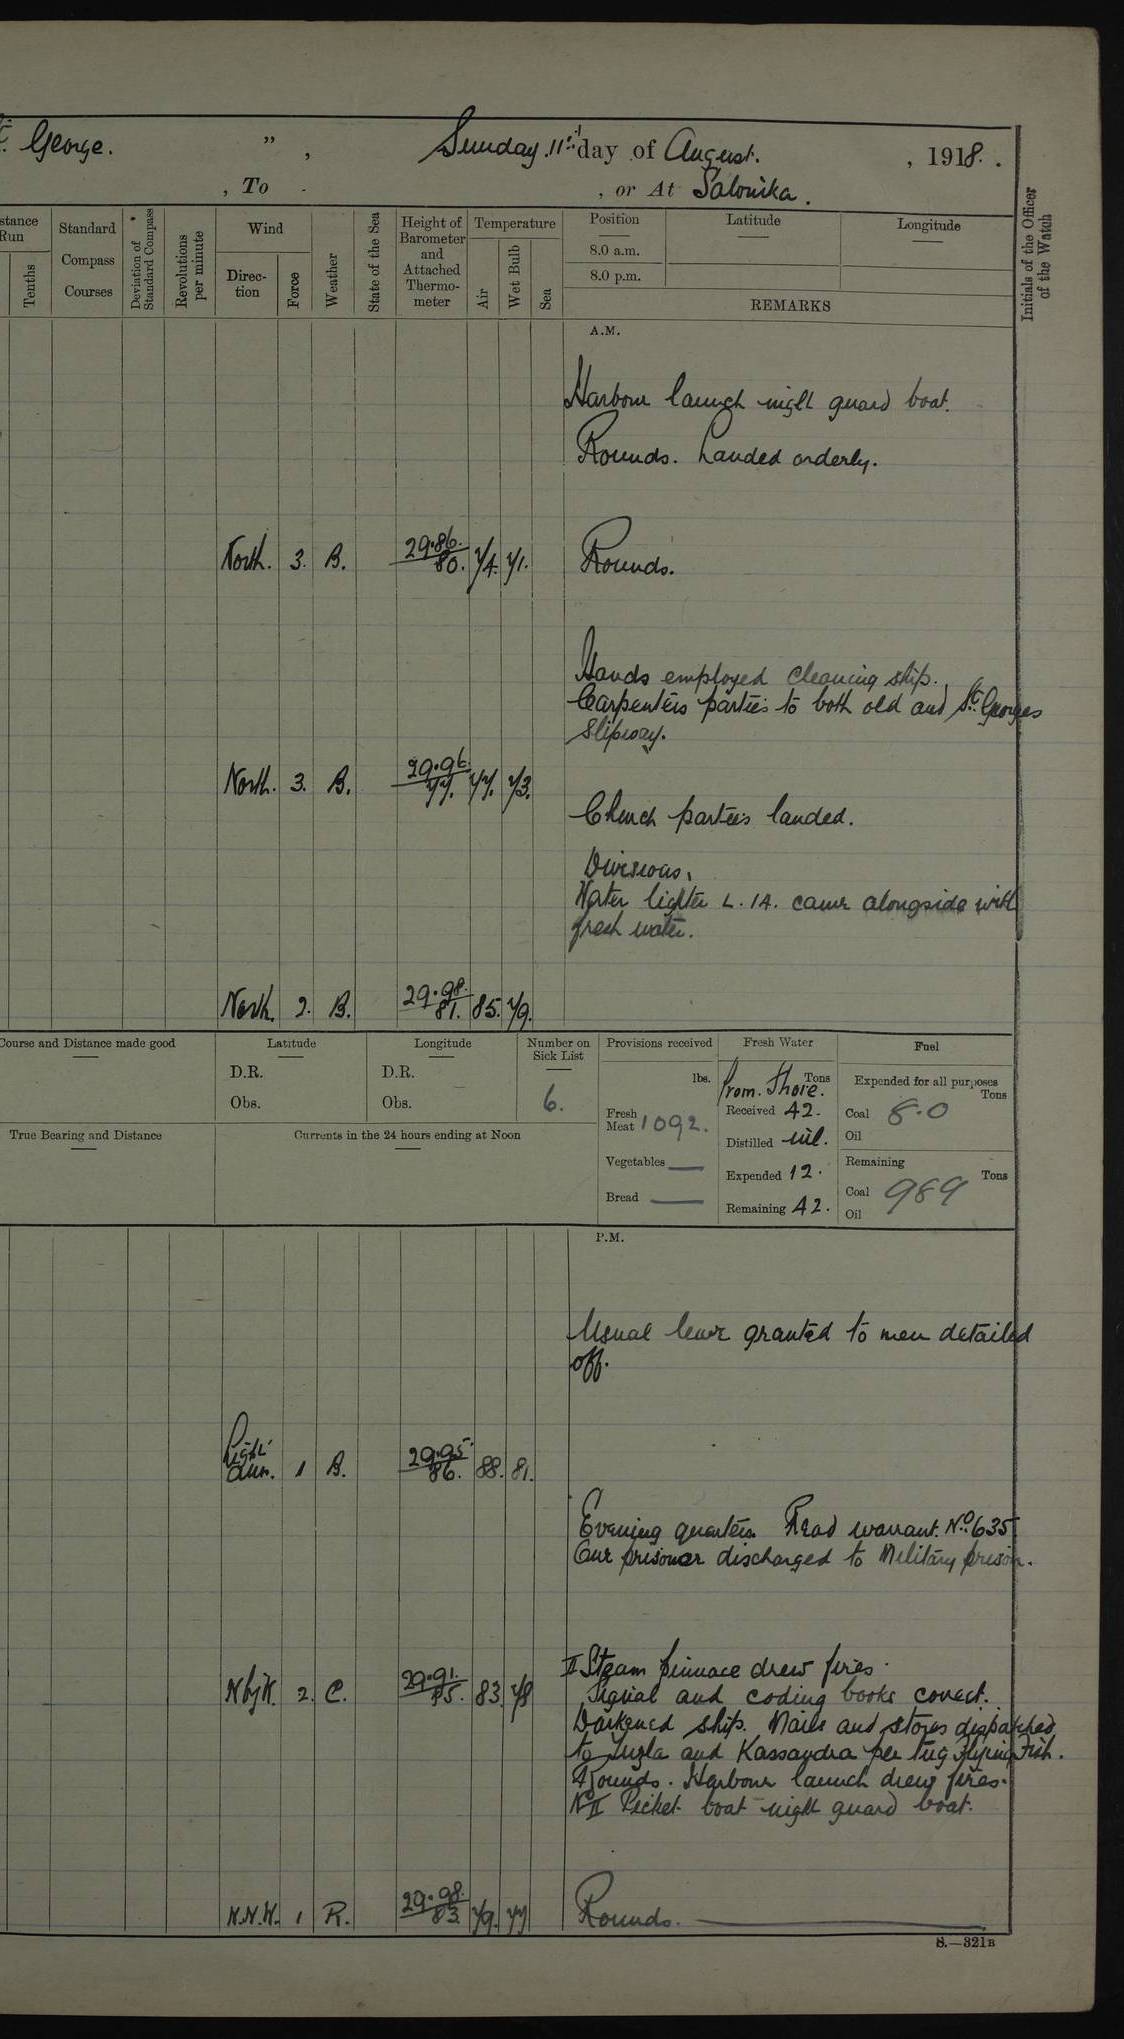 St. George. " , Sunday 11th day of August. , 1918.
, To , or At Salonika.
stance Run
Tenths
Standard Compass Courses
Deviation of Standard Compass *
Revolutions per minute
Wind
Direc-tion
Force
Weather
State of the Sea
Height of Barometer and Attached Thermo-meter
Temperature
Air
Wet Bulb
Sea
Position Latitude Longitude
8.0 a.m.
8.0 p.m.
REMARKS
Initials of the Officer of the Watch
A.M.
Harbour launch night guard boat.
Rounds. Landed orderly.
North. 3. B. 29.86. 80. 74. 71. Rounds.
Hands employed cleaning ship.
Carpenters parties to both old and St. Georges
Slipway.
North. 3. B. 29.96 77. 77. 73.
Church parties landed.
Divisions.
Water lighter L. 14. came alongside with
fresh water.
North. 2. B. 29.98. 81. 85. 79.
Course and Distance made good
Latitude
D.R.
Obs.
Longitude
D.R.
Obs.
Number on Sick List
6.
Provisions received
lbs.
Fresh Meat 1092.
Vegetables —
Bread —
Fresh Water
Tons
From Shore.
Received 42.
Distilled nil.
Expended 12.
Remaining 42.
Fuel
Expended for all purposes
Tons
Coal 8.0
Oil
Remaining
Tons
Coal 989
Oil
True Bearing and Distance
Currents in the 24 hours ending at Noon
P.M.
Usual leave granted to men detailed
off.
Light airs. 1 B. 29.95. 86. 88. 81.
Evening quarters. Read warrant. No. 635
One prisoner discharged to Military prison.
II Steam pinnace drew fires.
N by W. 2. C. 29.91. 85. 83. 78 Signal and coding books correct.
Darkened ship. Mails and stores dispatched
to Tuzla and Kassandra per tug Flying Fish.
Rounds. Harbour launch drew fires.
No II Picket boat night guard boat.
N.N.W. 1 R. 29.98. 83. 79. 77 Rounds.
S.—321B